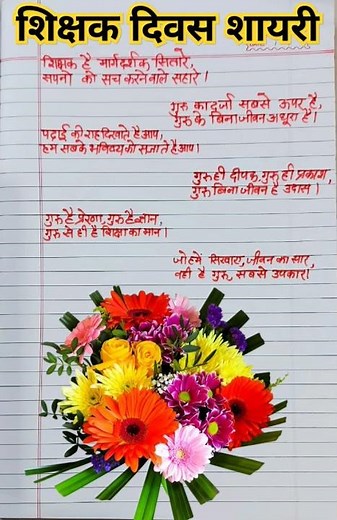 शिक्षक दिवस शायरी
शिक्षक है मार्गदर्शक सितारे,
सपनों को सच करने वाले सहारे।
गुरु का दर्जा सबसे ऊपर है,
गुरु के बिना जीवन अधूरा है।
पढ़ाई की राह दिखाते है आप,
हम सबके भविष्य को सजाते है आप।
गुरु ही दीपक, गुरु ही प्रकाश,
गुरु बिना जीवन है उदास।
गुरु है प्रेरणा, गुरु है ज्ञान,
गुरु से ही है शिक्षा का मान।
जो हमें सिखाए, जीवन का सार,
वही है गुरु, सबसे उपकार।